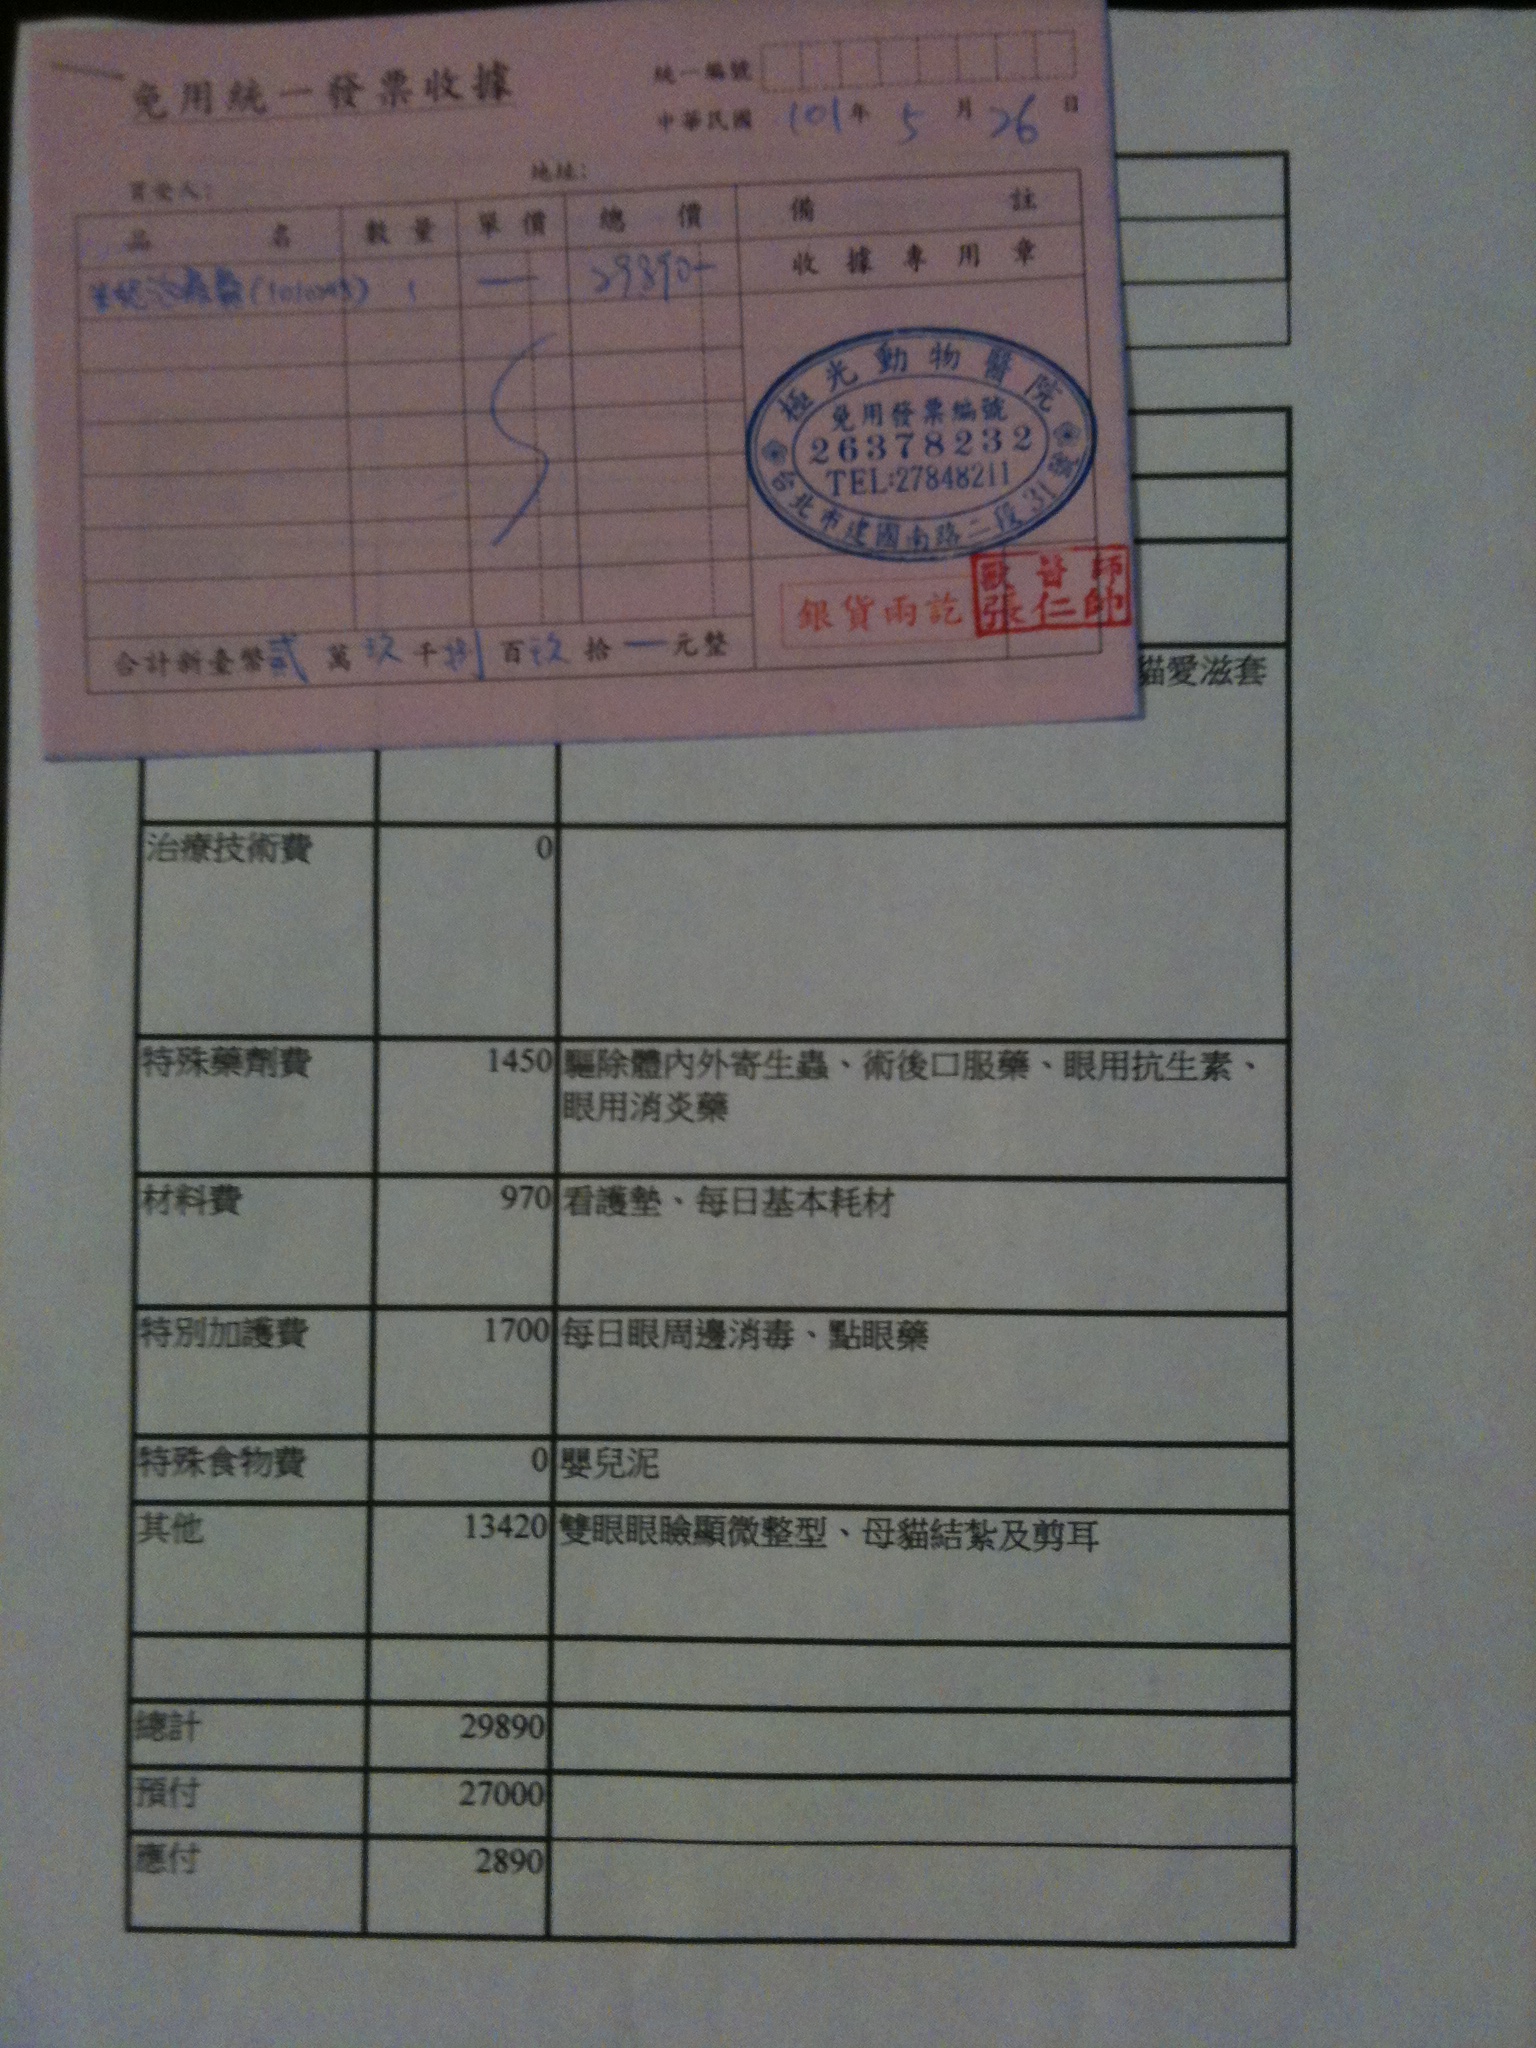 免用統一發票收據
統一編號
中華民國 101 年 5 月 26 日
買受人：
地址：
品 名 數量 單價 總 價 備 註
1 29890
收據專用章
極光動物醫院
免用發票編號
26378232
TEL:27848211
台北市建國南路二段31號
銀貨兩訖
獸醫師
張仁帥
合計新臺幣 貳 萬 玖 千 捌 百 玖 拾 元整
貓愛滋套
治療技術費 0
特殊藥劑費 1450 驅除體內外寄生蟲、術後口服藥、眼用抗生素、
眼用消炎藥
材料費 970 看護墊、每日基本耗材
特別加護費 1700 每日眼周邊消毒、點眼藥
特殊食物費 0 嬰兒泥
其他 13420 雙眼眼瞼顯微整型、母貓結紮及剪耳
總計 29890
預付 27000
應付 2890